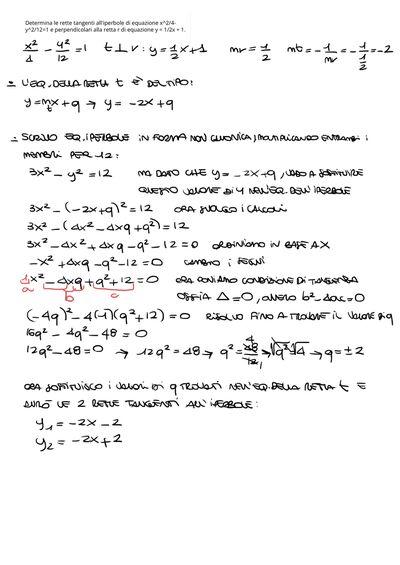 Determina le rette tangenti all'iperbole di equazione x^2/4-
y^2/12=1 e perpendicolari alla retta r di equazione y = 1/2x + 1.
x²/4 - y²/12 = 1   t ⊥ r : y = 1/2 x + 1   mr = 1/2   mt = -1/mr = -1/(1/2) = -2
• L'EQ. DELLA RETTA t È DEL TIPO:
y = mx + q → y = -2x + q
t
• SCRIVO EQ. IPERBOLE IN FORMA NON CANONICA, MOLTIPLICANDO ENTRAMBI I
MEMBRI PER 12:
3x² - y² = 12   MA DATO CHE y = -2x + q, VADO A SOSTITUIRE
QUESTO VALORE DI y NELL'EQ. DELL'IPERBOLE
3x² - (-2x+q)² = 12   ORA SVOLGO I CALCOLI
3x² - (4x² - 4xq + q²) = 12
3x² - 4x² + 4xq - q² - 12 = 0   ORDINIAMO IN BASE A X
-x² + 4xq - q² - 12 = 0   CAMBIO I SEGNI
1x² - 4xq + q² + 12 = 0   ORA PONIAMO CONDIZIONE DI TANGENZA
a b c   OSSIA Δ = 0, OVVERO b² - 4ac = 0
(-4q)² - 4(1)(q² + 12) = 0   RISOLVO FINO A TROVARE IL VALORE DI q
16q² - 4q² - 48 = 0
12q² - 48 = 0 → 12q² = 48 → q² = 48/12 4 1 → √q² = √4 → q = ±2
ORA SOSTITUISCO I VALORI DI q TROVATI NELL'EQ. DELLA RETTA t E
AVRÒ LE 2 RETTE TANGENTI ALL'IPERBOLE:
y₁ = -2x - 2
y₂ = -2x + 2